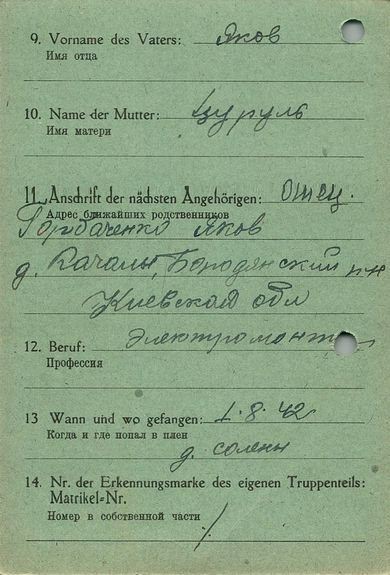 9. Vorname des Vaters: Яков
Имя отца
10. Name der Mutter: Цуруль
Имя матери
11. Anschrift der nächsten Angehörigen: Отец.
Адрес ближайших родственников
Горбаченко Яков
д. Качалы, Бородянский р-н
Киевская обл
12. Beruf: Электромонт
Профессия
13 Wann und wo gefangen: 1.8.42
Когда и где попал в плен
д. солены
14. Nr. der Erkennungsmarke des eigenen Truppenteils:
Matrikel-Nr.
Номер в собственной части